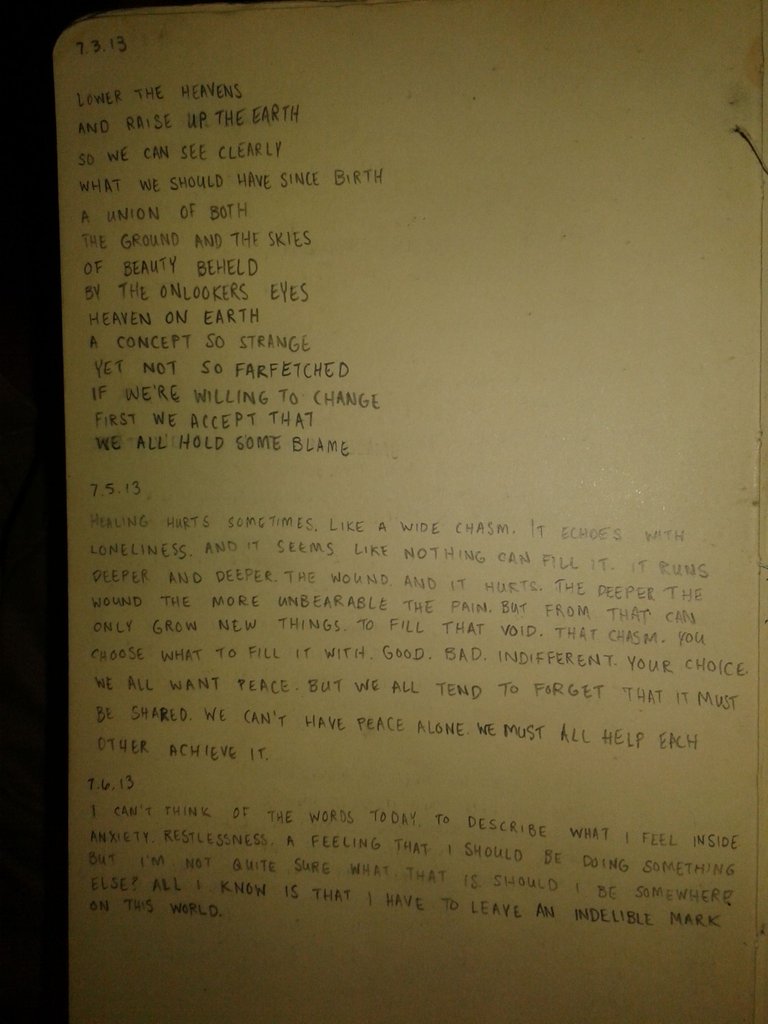 7.3.13
LOWER THE HEAVENS
AND RAISE UP THE EARTH
SO WE CAN SEE CLEARLY
WHAT WE SHOULD HAVE SINCE BIRTH
A UNION OF BOTH
THE GROUND AND THE SKIES
OF BEAUTY BEHELD
BY THE ONLOOKERS EYES
HEAVEN ON EARTH
A CONCEPT SO STRANGE
YET NOT SO FARFETCHED
IF WE'RE WILLING TO CHANGE
FIRST WE ACCEPT THAT
WE ALL HOLD SOME BLAME
7.5.13
HEALING HURTS SOMETIMES. LIKE A WIDE CHASM. IT ECHOES WITH
LONELINESS. AND IT SEEMS LIKE NOTHING CAN FILL IT. IT RUNS
DEEPER AND DEEPER. THE WOUND. AND IT HURTS. THE DEEPER THE
WOUND THE MORE UNBEARABLE THE PAIN. BUT FROM THAT CAN
ONLY GROW NEW THINGS. TO FILL THAT VOID. THAT CHASM. YOU
CHOOSE WHAT TO FILL IT WITH. GOOD. BAD. INDIFFERENT. YOUR CHOICE.
WE ALL WANT PEACE. BUT WE ALL TEND TO FORGET THAT IT MUST
BE SHARED. WE CAN'T HAVE PEACE ALONE. WE MUST ALL HELP EACH
OTHER ACHIEVE IT.
7.6.13
I CAN'T THINK OF THE WORDS TODAY. TO DESCRIBE WHAT I FEEL INSIDE
ANXIETY. RESTLESSNESS. A FEELING THAT I SHOULD BE DOING SOMETHING
BUT I'M NOT QUITE SURE WHAT THAT IS. SHOULD I BE SOMEWHERE
ELSE? ALL I KNOW IS THAT I HAVE TO LEAVE AN INDELIBLE MARK
ON THIS WORLD.